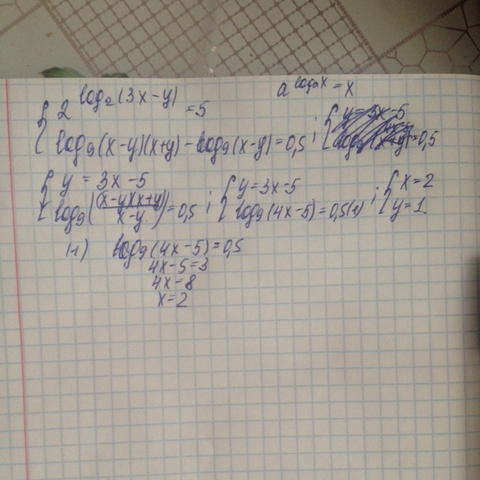 { 2^log₂(3x-y) = 5   a^logₐx = x
log₉(x-y)(x+y) - log₉(x-y) = 0,5 ; {
{ y = 3x-5
log₉((x-y)(x+y)/x-y) = 0,5 ; { y = 3x-5
log₉(4x-5) = 0,5(1) ; { x = 2
y = 1.
(1) log₉(4x-5) = 0,5
4x-5 = 3
4x = 8
x = 2